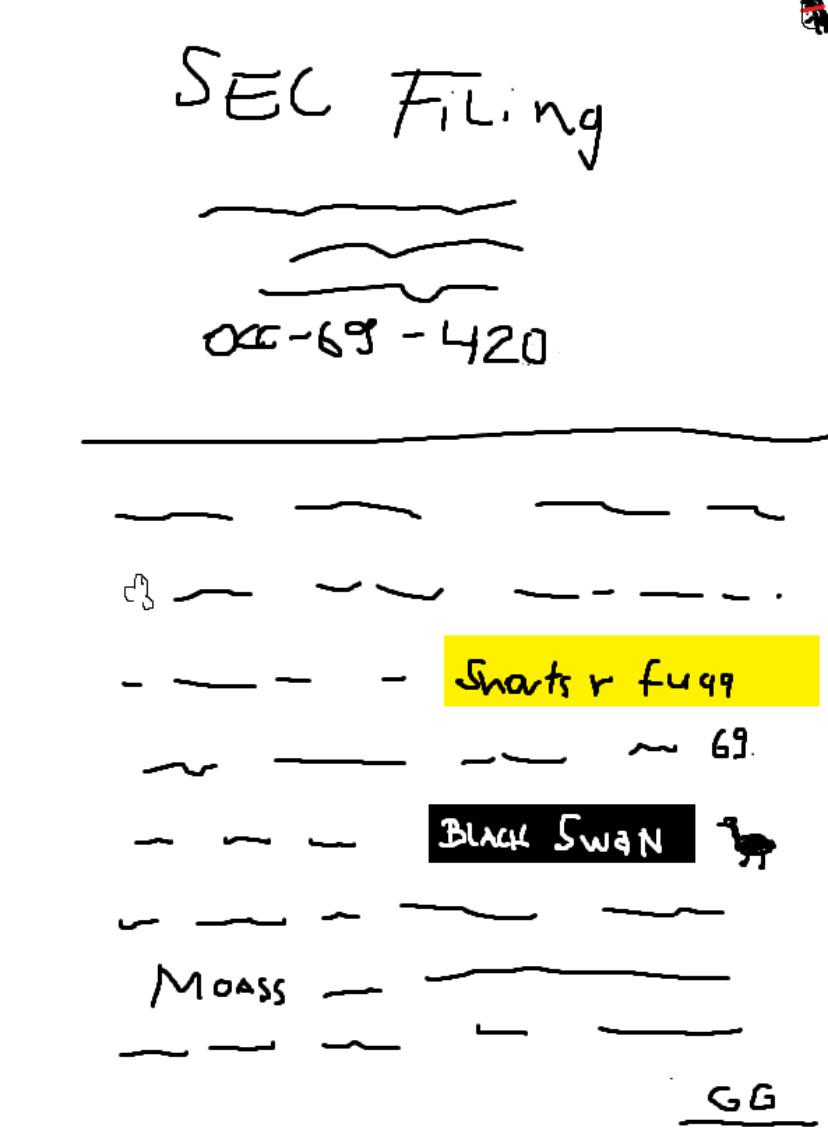 SEC FiLing
OCC-69-420
Shorts r fuqq
69.
BLACK SWaN
MOASS
GG